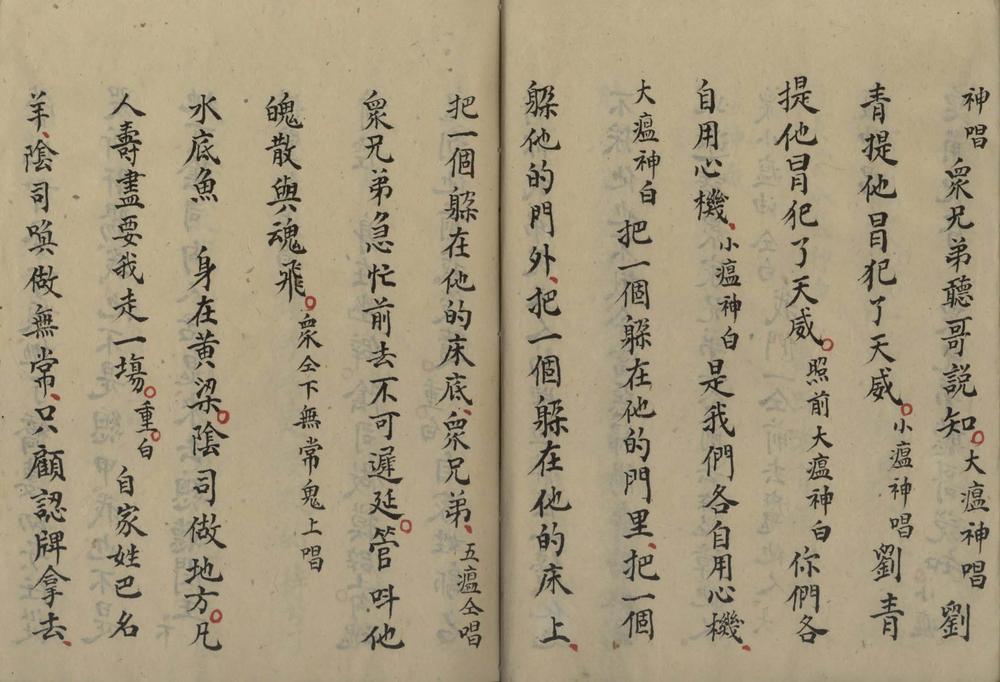 神唱 衆兄弟聽哥説知。大瘟神唱 劉
青提他冒犯了天威。小瘟神唱 劉青
提他冒犯了天威。照前大瘟神白 你們各
自用心機、小瘟神白 是我們各自用心機、
大瘟神白 把一個躲在他的門里、把一個
躲他的門外、把一個躲在他的床上、
把一個躲在他的床底、衆兄弟、五瘟仝唱
衆兄弟急忙前去不可遲延。管呌他
魄散與魂飛。衆仝下無常鬼上唱
水底魚 身在黄梁。陰司做地方。凡
人壽盡要我走一塲。重。白 自家姓巴名
羊、陰司喚做無常、只顧認牌拿去、